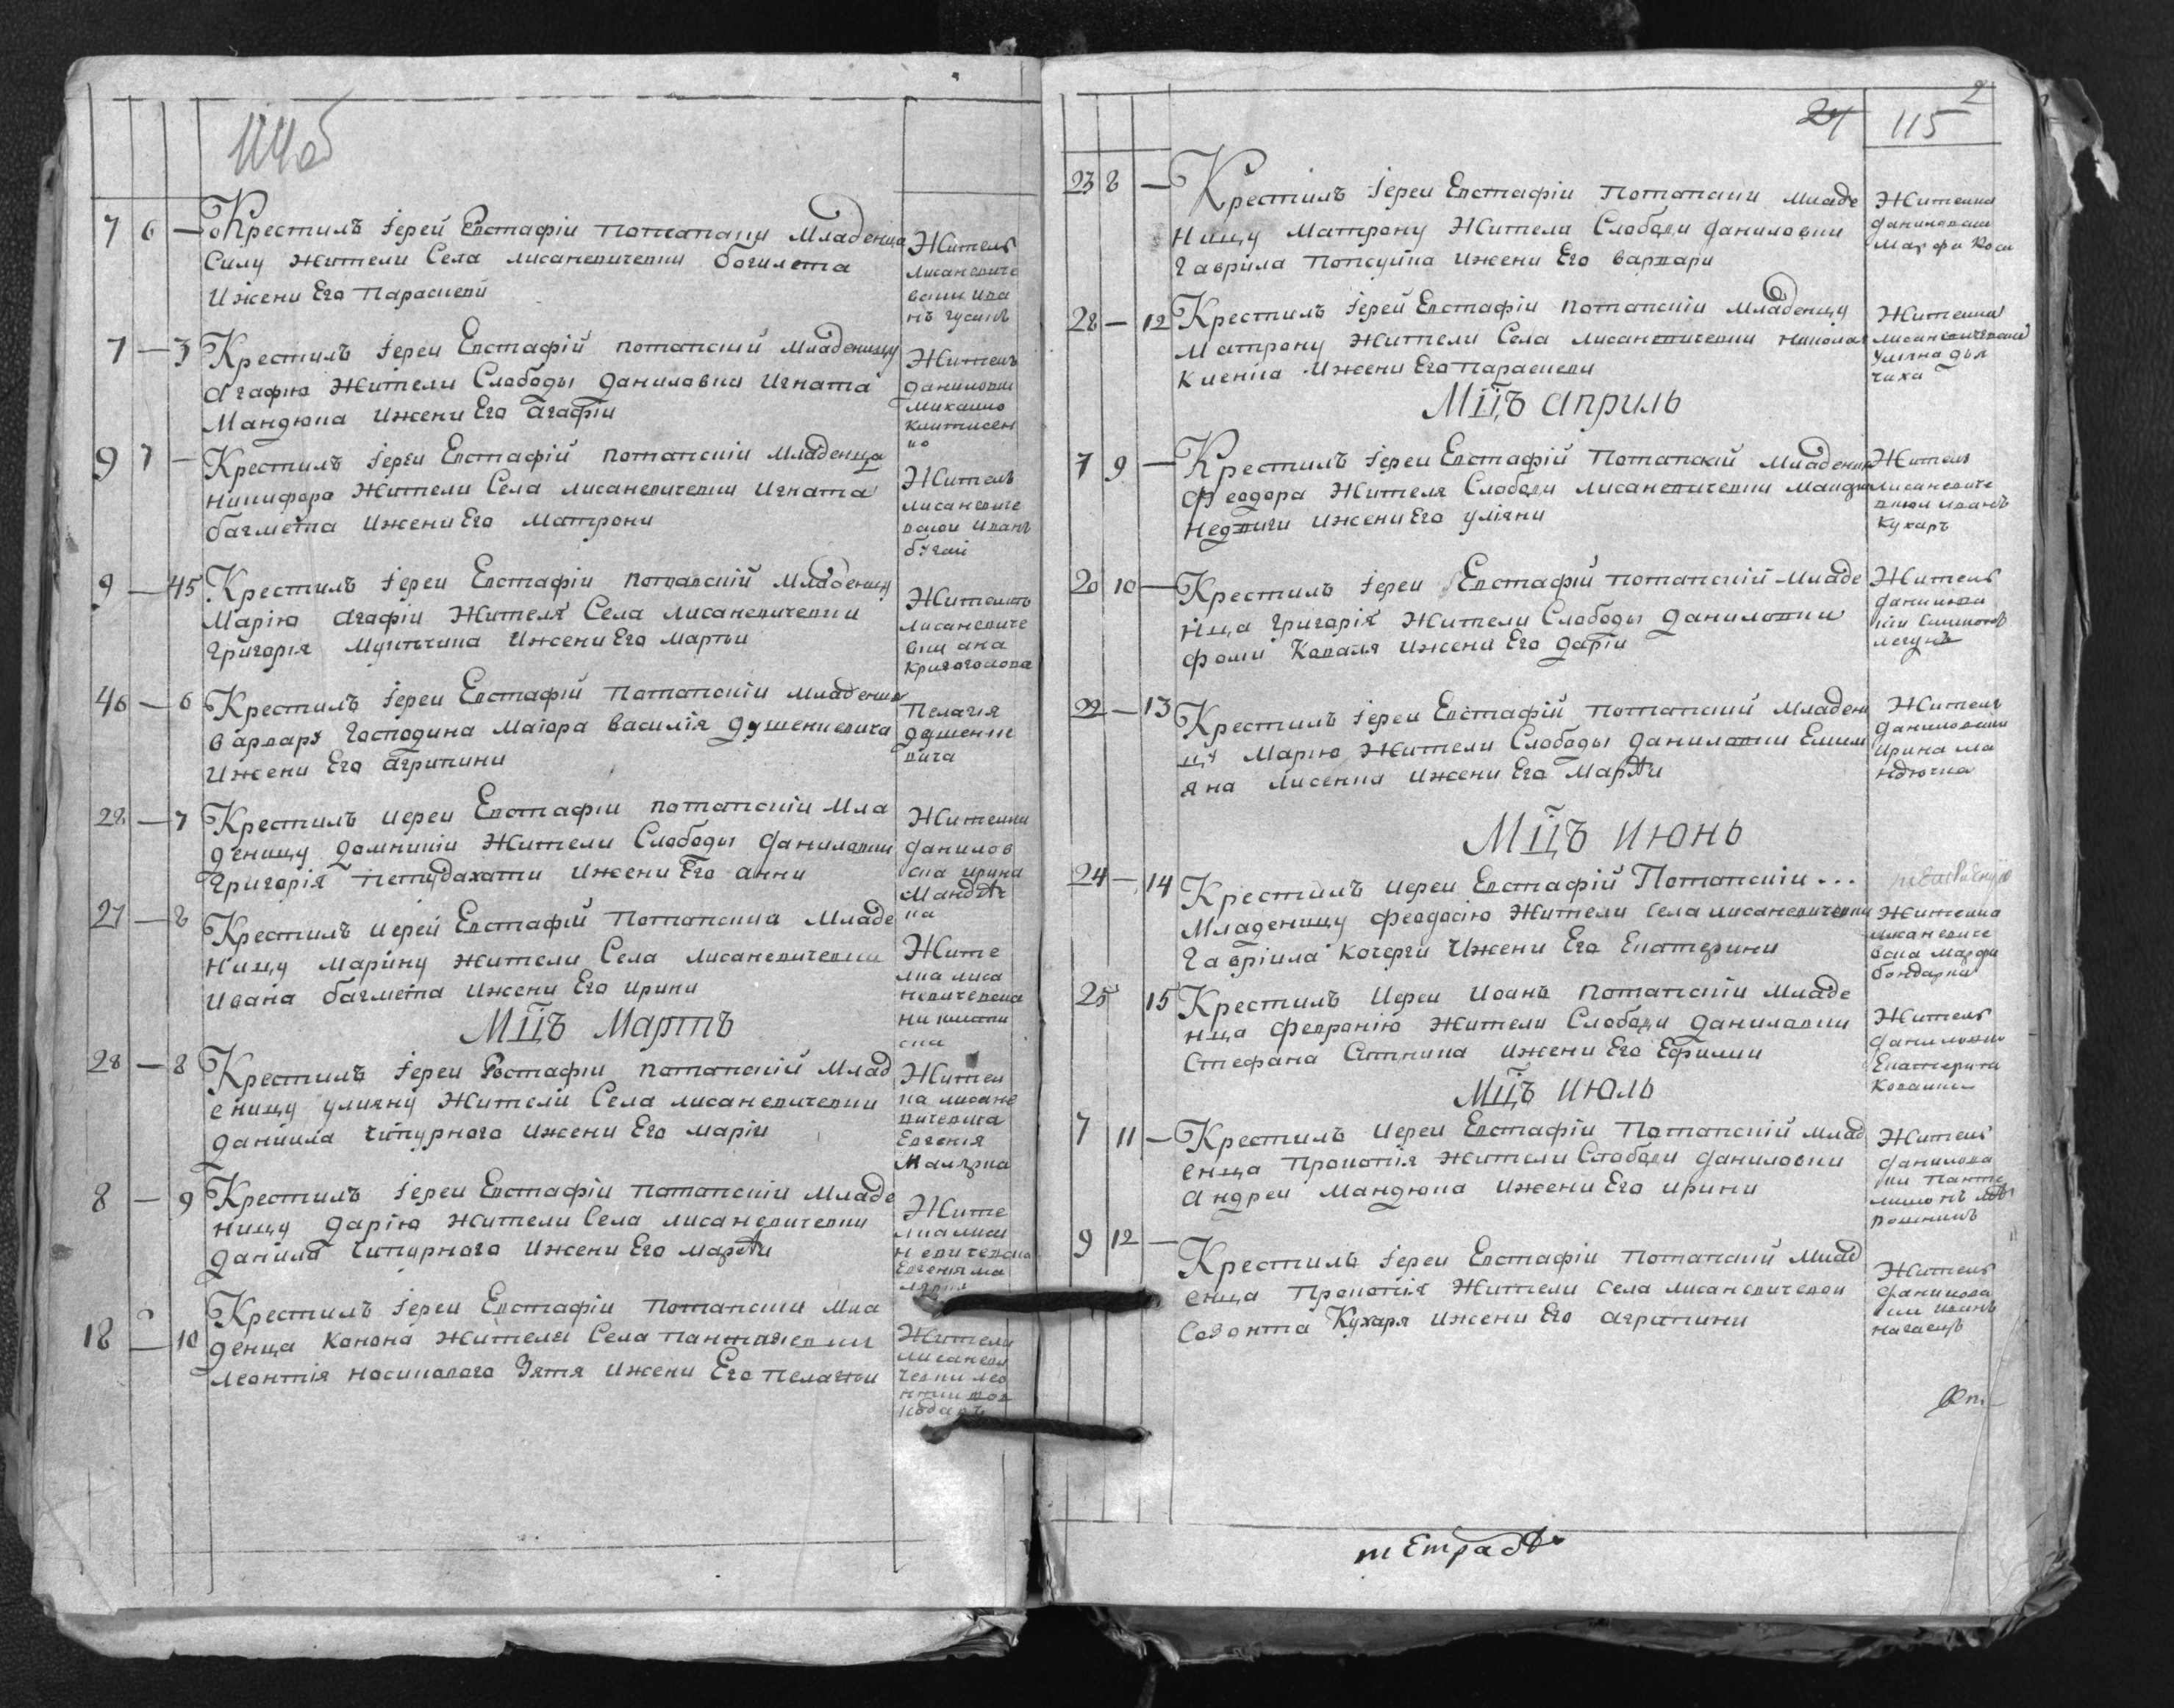 114об
7 6 — Крестилъ Іерей Евстафіи Потапский Младенца
Силу Жители Села лисаневичевки богмета
Ижени Его Параскеви
Житель
лисаневиче
вски Ива
нъ гусакъ
7 — 3 Крестилъ Іереи Евстафій потапский Младеницу
Агафію Жители Слободы даниловки Игната
Мандюка Ижени Его Агафіи
Житель
даниловки
Михаило
9 7 — Крестилъ Іереи Евстафій потапскіи Младенца
никифора Жители Села лисаневичевки Игната
багмета Ижени Его Матрони
Житель
лисаневиче
вскои Иванъ
бугай
9 — 45 Крестилъ Іереи Евстафіи потапскій Младеницу
Марію Агафіи Жителя Села лисаневичевки
Григорія Ижени Его Марты
лисаневиче
вки ана
Кривоголова
46 — 6 Крестилъ Іереи Евстафій Потапскіи Младеница
варвару Господина Маіора василія душенкевича
Ижени Его Агрипини
Пелагія
душенке
вича
28 — 7 Крестилъ иереи Евстафіи потапскіи Мла
деницу домникіи Жители Слободы даниловки
Григорія Ижени Его анни
Жителка
данилов
ска ирина
Мандю
ка
27 — 8 Крестилъ иерей Евстафій Потапский Младе
ницу Марину жители Села лисаневичевки
Ивана багмета Ижени Его ирини
Жите
лка лиса
невичевска
Мцъ Мартъ
28 — 8 Крестилъ Іереи Евстафіи потапскій Млад
еницу улияну Жители Села лисаневичевки
даниила Чипурного Ижени Его маріи
Жител
ка лисане
вичевска
Евгенія
Малярка
8 — 9 Крестилъ Іереи Евстафіи потапскіи Младе
ницу дарію жители Села лисаневичевки
данила Чипурного Ижени Его Марѳи
Жите
лка лиса
невичевска
Евгенія ма
лярка
18 — 10 Крестилъ Іереи Евстафіи потапский Мла
денца Конона Жителеи Села
леонтія носиковаго Зятя Ижени Его Пелагіи
Жители
лисаневи
чевки лео
2
24 115
23 8 — Крестилъ Іереи Евстафіи Потапский Младе
ницу Матрону Жители Слободи даниловки
Гаврила Ижени Его варвари
Жителка
даниловски
Марфа
28 — 12 Крестилъ Іерей Евстафіи потапскіи Младеницу
Матрону Жители Села лисаневичевки николая
Ижени Его Параскеви
Жителка
лисаневичевска
Улияна дья
чиха
Мцъ Априль
7 9 — Крестилъ Іереи Евстафій Потапский Младенца
Феодора Жителя Слободи лисаневичевки
недвиги Ижени Его уліяни
Житель
лисаневиче
вскои иванъ
Кухаръ
20 10 — Крестилъ Іереи Евстафій потапскій Младе
нца Григорія Жители Слободы даниловки
Фоми Коваля Ижени Его даріи
Житель
22 — 13 Крестилъ Іереи Евстафій потапский Младени
цу Марію Жители Слободы даниловки Емили
яна лисенка Ижени Его Марѳи
Житель
даниловски
Ирина ма
ндючка
Мцъ Июнь
24 — 14 Крестилъ иереи Евстафій Потапскіи . . .
Младеницу Феодосію Жители Села лисаневичевки
Гавріила Кочерги Ижени Его Екатерини
Жителка
лисаневиче
вска Марфа
бондарка
25 15 Крестилъ Иереи Иоанъ потапскіи Младе
нца Февронію Жители Слободи даниловки
Стефана Ситника Ижени Его Ефимии
Житель
даниловки
Екатерина
Мцъ Июль
7 11 — Крестилъ Иереи Евстафіи Потапскій Млад
енца Прокопія Жители Слободи даниловки
Андреи Мандюка Ижени Его ирини
Житель
данилова
9 12 — Крестилъ Іереи Евстафіи Потапский Млад
енца Прокопія Жители Села лисаневичевои
Созонта Кухаря Ижени Его Агрипини
Житель
данилова
ски иванъ
нагаецъ
тетрадь